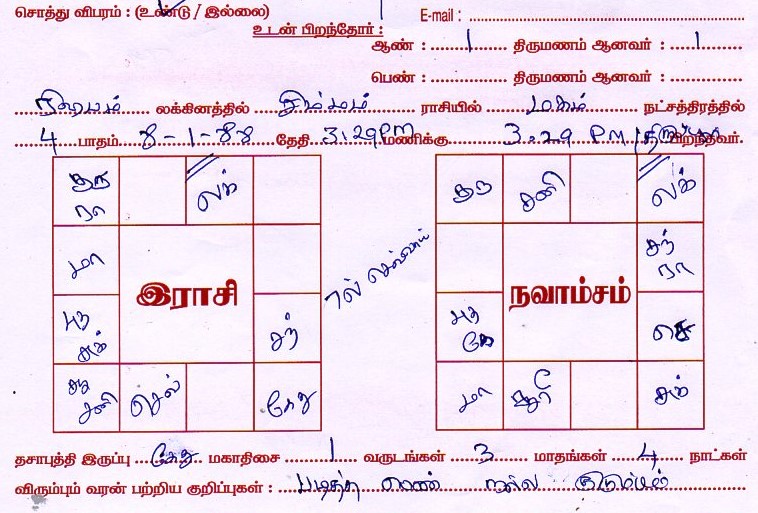 சொத்து விபரம் : (உண்டு / இல்லை) E-mail :
உடன் பிறந்தோர் :
ஆண் : 1 திருமணம் ஆனவர் : 1
பெண் : திருமணம் ஆனவர் :
ரிஷபம் லக்கினத்தில் சிம்மம் ராசியில் மகம் நட்சத்திரத்தில்
4 பாதம் 8-1-88 தேதி 3:29 PM மணிக்கு 3:29 P.M. பிறந்தவர்.
குரு ரா லக்
மா
இராசி
புத சுக் சந்
சனி செல் கேது
7ல் செவ்வாய்
குரு சனி லக்
சந் ரா
நவாம்சம்
புத கே செ
மா சூரி சுக்
தசாபுத்தி இருப்பு கேது மகாதிசை 1 வருடங்கள் 3 மாதங்கள் 4 நாட்கள்
விரும்பும் வரன் பற்றிய குறிப்புகள் : படித்த நல்ல குடும்பம்